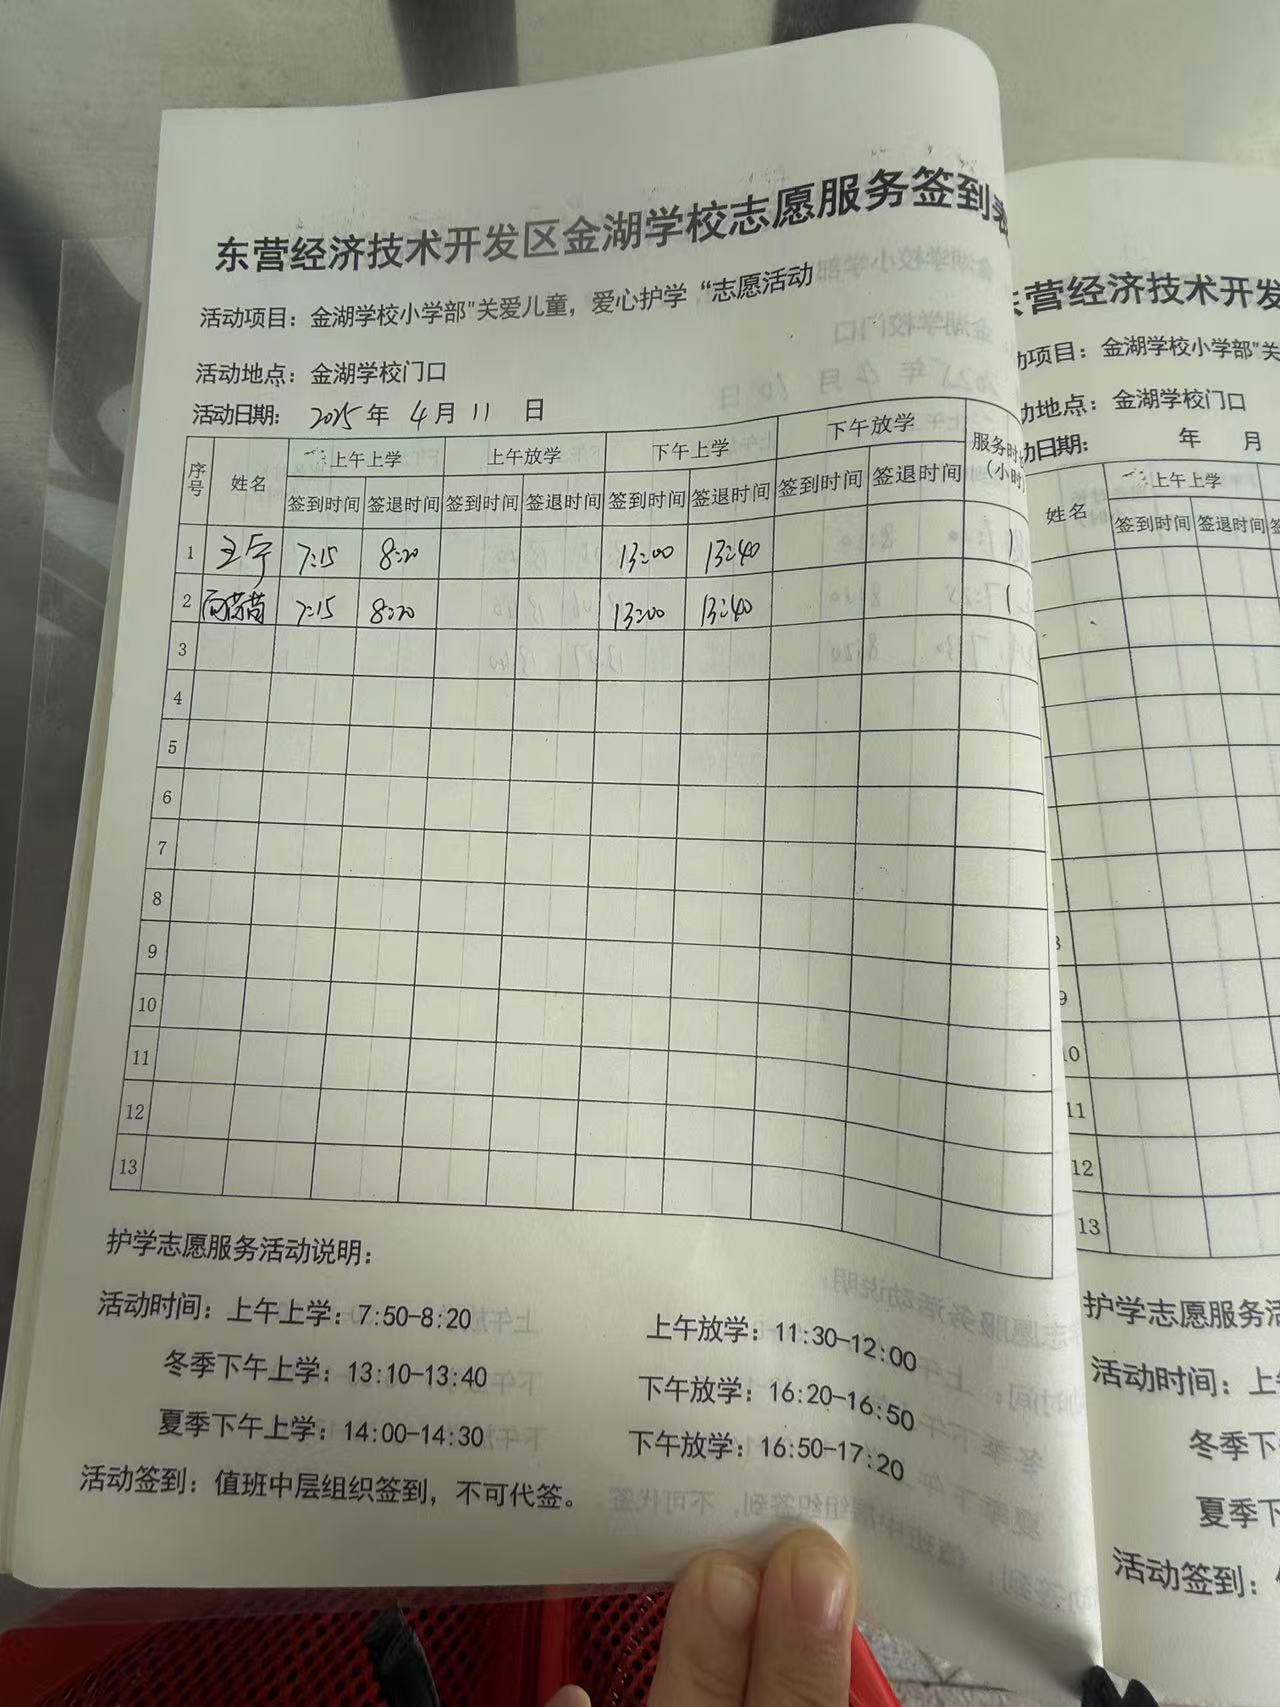 东营经济技术开发区金湖学校志愿服务签到表
活动项目：金湖学校小学部"关爱儿童，爱心护学“志愿活动
活动地点：金湖学校门口
活动日期： 2025年 4月 11 日
序号 姓名 上午上学 上午放学 下午上学 下午放学 服务时 (小时
签到时间 签退时间 签到时间 签退时间 签到时间 签退时间 签到时间 签退时间
1 王宁 7:15 8:20 13:00 13:40
2 7:15 8:20 13:00 13:40
3
4
5
6
7
8
9
10
11
12
13
护学志愿服务活动说明：
活动时间：上午上学：7:50-8:20 上午放学：11:30-12:00
冬季下午上学：13:10-13:40 下午放学：16:20-16:50
夏季下午上学：14:00-14:30 下午放学：16:50-17:20
活动签到：值班中层组织签到，不可代签。
东营经济技术开发
动项目：金湖学校小学部"关
动地点：金湖学校门口
动日期： 年 月
姓名 上午上学
签到时间 签退时间 签
8
9
10
11
12
13
护学志愿服务活
活动时间：上
冬季下
夏季下
活动签到：